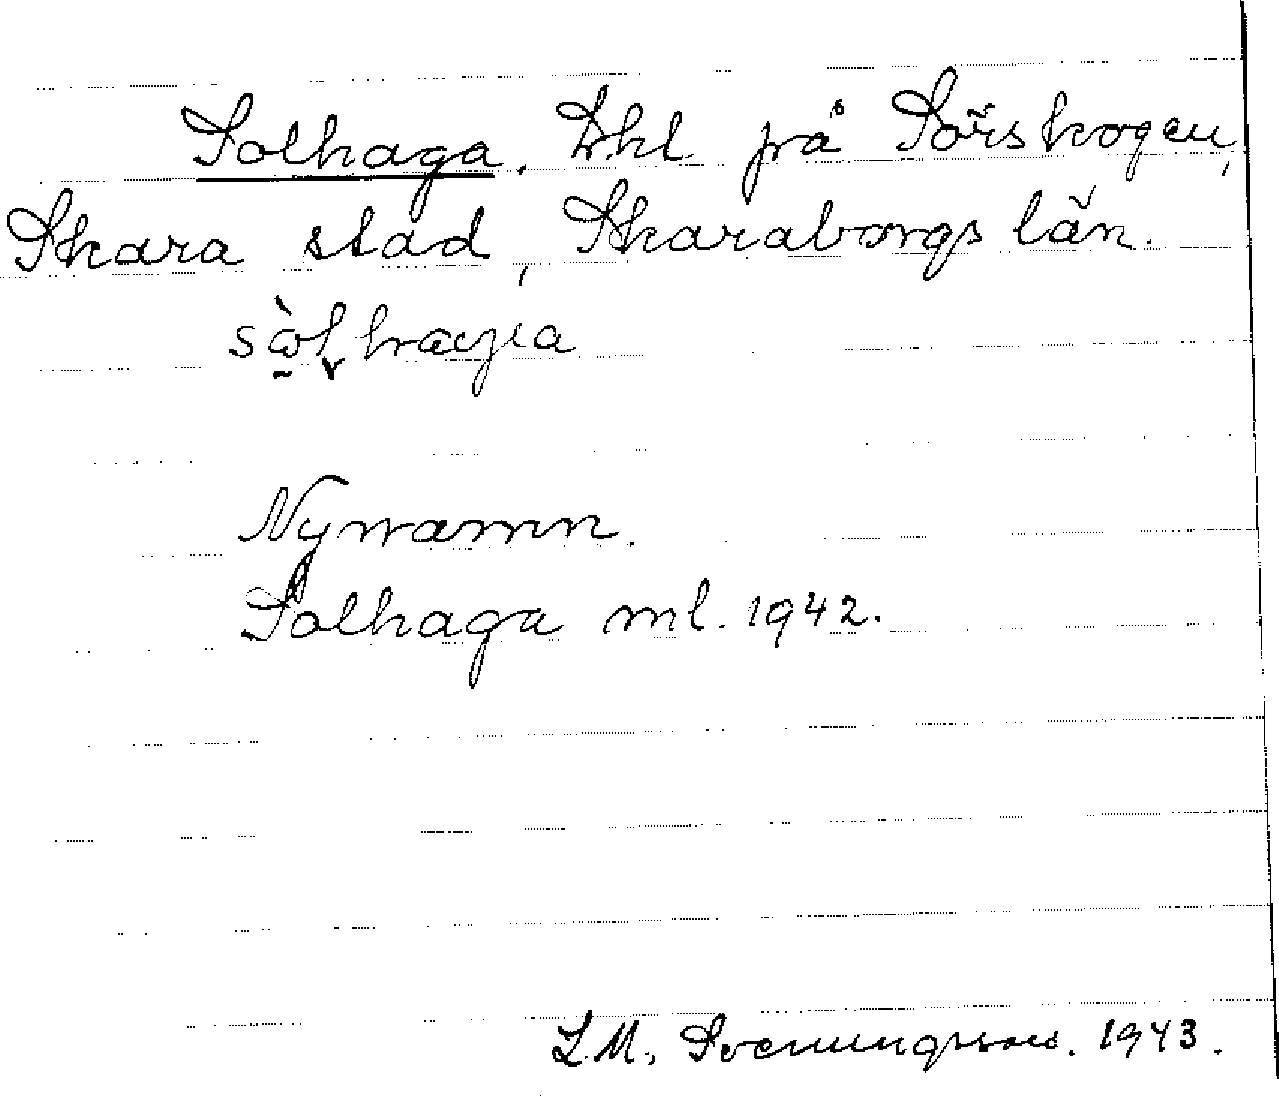 Solhaga. Lhl på Sörskogen,
Skara stad, Skaraborgs län.
Nynamn.
Solhaga ml. 1942.
L.M. Svenungsson. 1943.